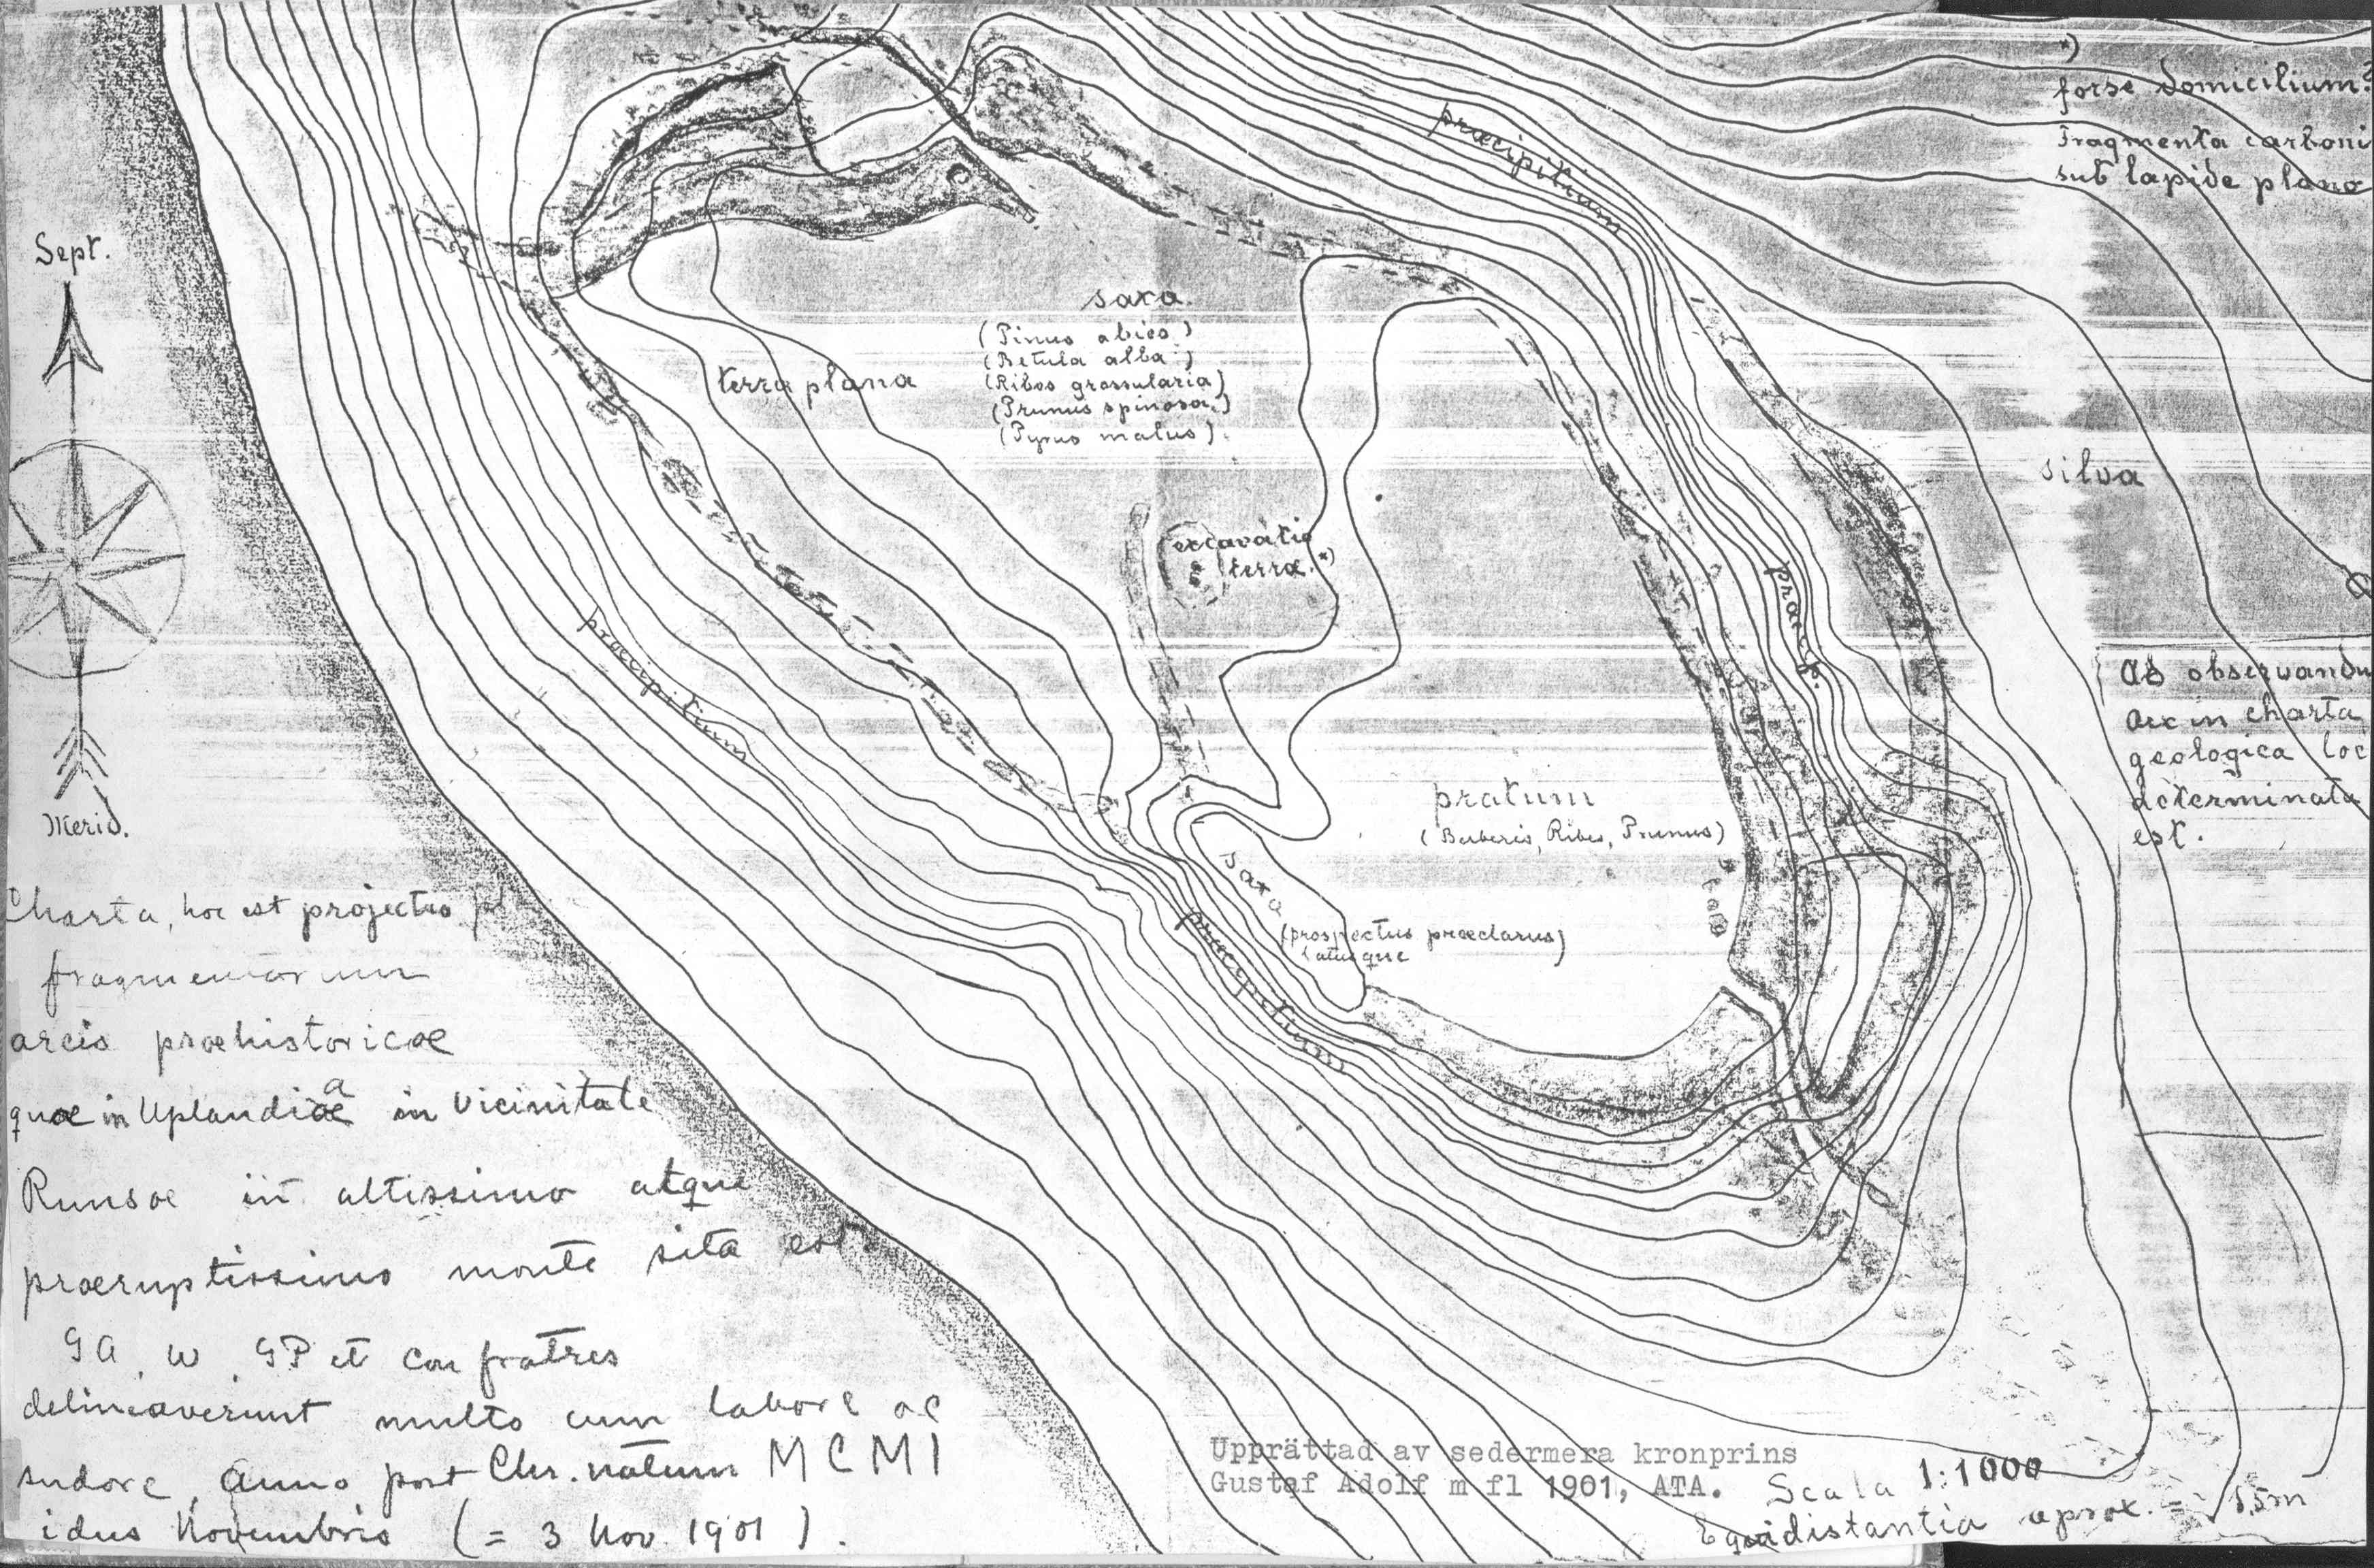 *)
forse domicilium?
Fragmenta carboni
sub lapide plano
præcipitium
Sept.
saxa.
(Pinus abies)
(Betula alba)
(Ribes grossularia)
(Prunus spinosa)
(Pyrus malus)
terra plana
silva
excavatio
terræ. *)
præcip.
præcipitium
Ad observandu
arx in charta
geologica loc
determinata
est.
Merid.
pratum
(Berberis, Ribes, Prunus)
saxa
saxa
(prospectus præclarus)
latusque
præcipitium
Charta, hoc est projectio
fragmentorum
arcis præhistoricæ
quæ in Uplandiæ a in vicinitate
Runsæ in altissimo atque
præruptissimo monte sita est
GA, W, GP et con fratres
delineaverunt multo cum labore ac
sudore, Anno post Chr. natum MCMI
idus Novembris (= 3 Nov. 1901).
Upprättad av sedermera kronprins
Gustaf Adolf m fl 1901, ATA.
Scala 1:1000
Equidistantia aprox. = 1,5m